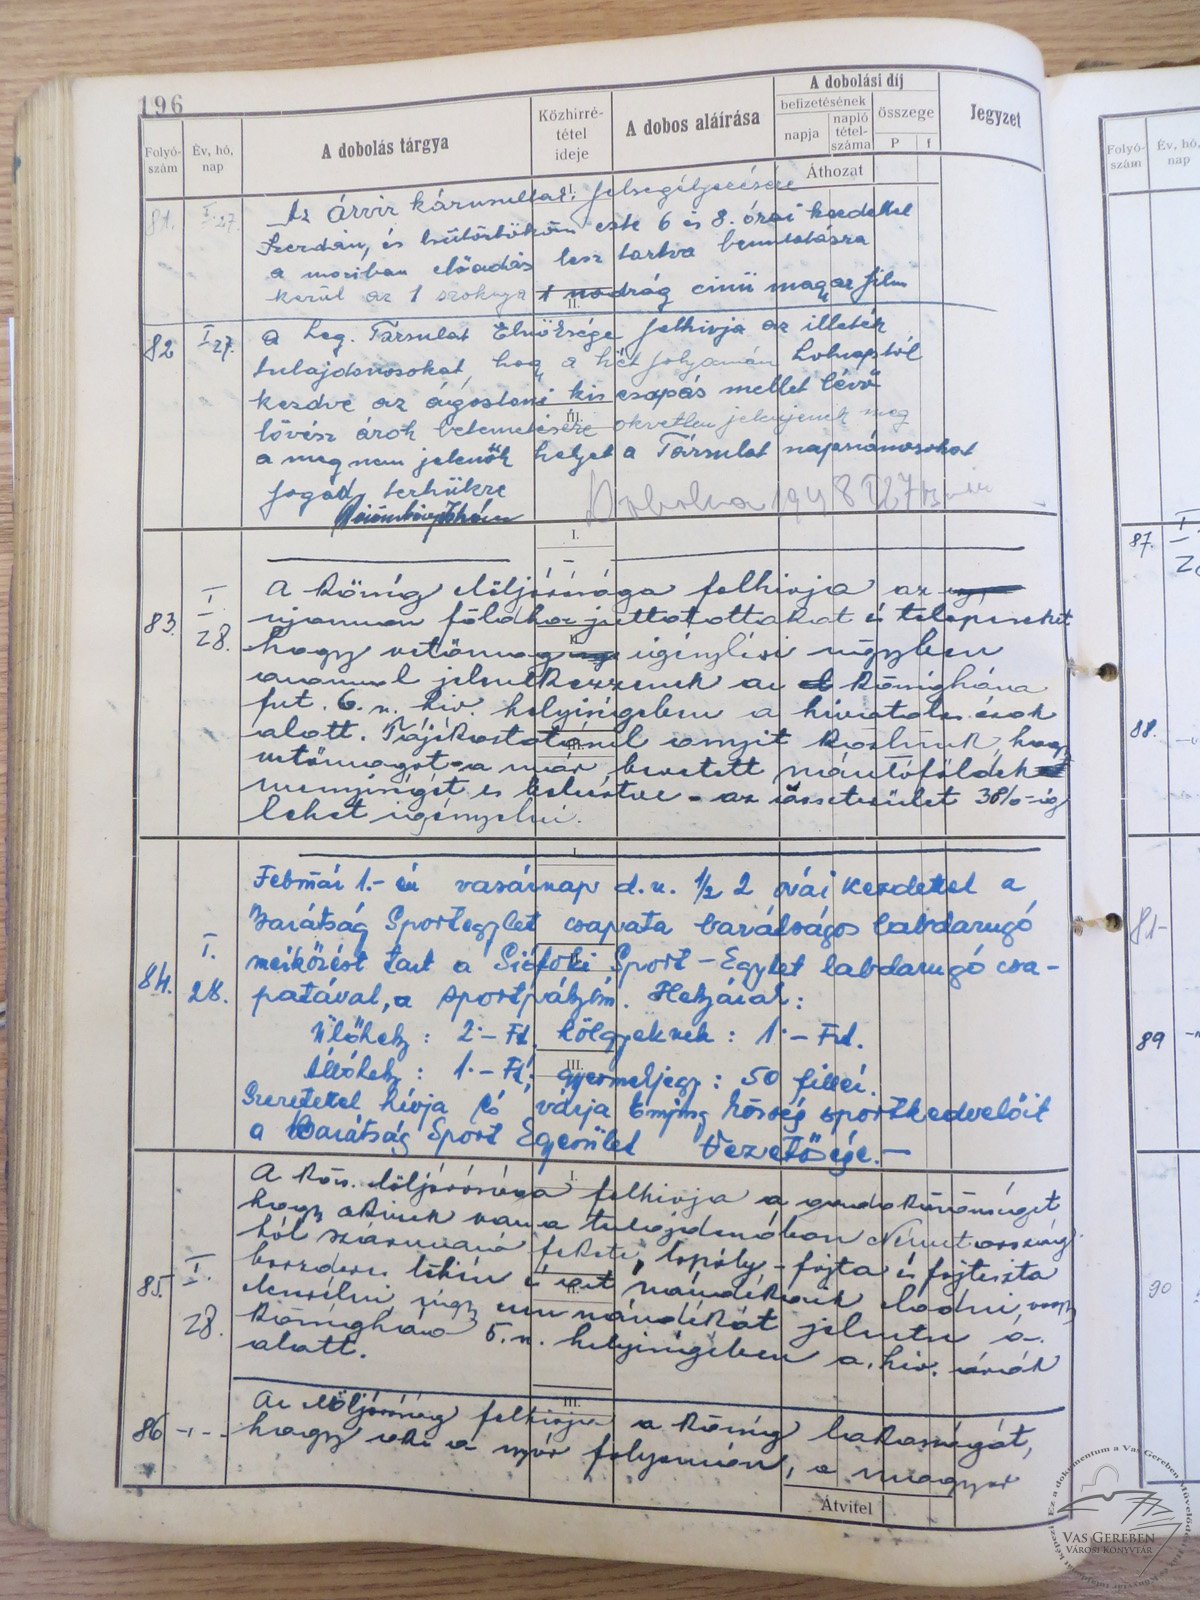 196
Folyó-szám
Év, hó, nap
A dobolás tárgya
Közhirré-tétel ideje
A dobos aláírása
A dobolási díj
befizetésének
napja
napló tétel-száma
összege
P f
Jegyzet
Áthozat
81. I. 27.
Az árvíz károsultak felsegélyezésére
Szerdán, és csütörtökön este 6 és 8. órai kezdettel
a moziban előadás lesz tartva bemutatásra
kerül az 1 szoknya 1 nadrág cimü magyar film
82 I 27.
a Leg. Társulat Elnöksége felhivja az illeték
tulajdonosokat hogy a hét folyamán holnaptól
kezdve az ágostoni kis csapás mellet lévő
lövész árok betemetésére okvetlen jelenjenek meg
a meg nem jelenők helyet a Társulat napszámosokat
fogad terhükre
1948 I 27
83. I. 28.
A község Elöljárósága felhivja az
ujonnan földhöz juttatottakat és telepeseket
hogy vetőmag igénylési ügyben
azonnal jelentkezzenek a községháza
fut. 6. n. hiv. helyiségében a hivatalos órák
alatt. Tájékoztatásul annyit közlünk, hogy
vetőmagot a már bevetett szántóföldek
menyiségét is beleértve - az összterület 38%-ig
lehet igényelni.
84. I. 28.
Február 1.-én vasárnap d.u. 1/2 2 órai kezdettel a
Barátság Sportegylet csapata barátságos labdarugó
mérkőzést tart a Siófoki Sport-Egylet labdarugó csa-
patával, a sportpályán. Helyárak:
Ülőhely: 2.- Ft. hölgyeknek: 1.- Frt.
Állóhely: 1.- Ft, gyermekjegy: 50 fillér.
Szeretettel hívja és várja Enying község sportkedvelőit
a Barátság Sport Egyesület Vezetősége.-
85. I. 28.
A közs. Elöljárósága felhivja a gazdaközönséget
hogy akinek van a tulajdonában Németország-
ból származó fekete, lapály-fajta és fajtiszta
tehén és azt szándékozik eladni, vagy
cserélni, úgy ezen szándékát jelentse a
községháza 5. n. helyiségében a hiv. órák
alatt.
86 -I-
Az Elöljáróság felhivja a község lakosságát,
hogy aki a nyár folyamán, a magyar
Átvitel
Folyó-szám
Év, hó,
87.
88.
81-
89
90
VAS GEREBEN
VÁROSI KÖNYVTÁR